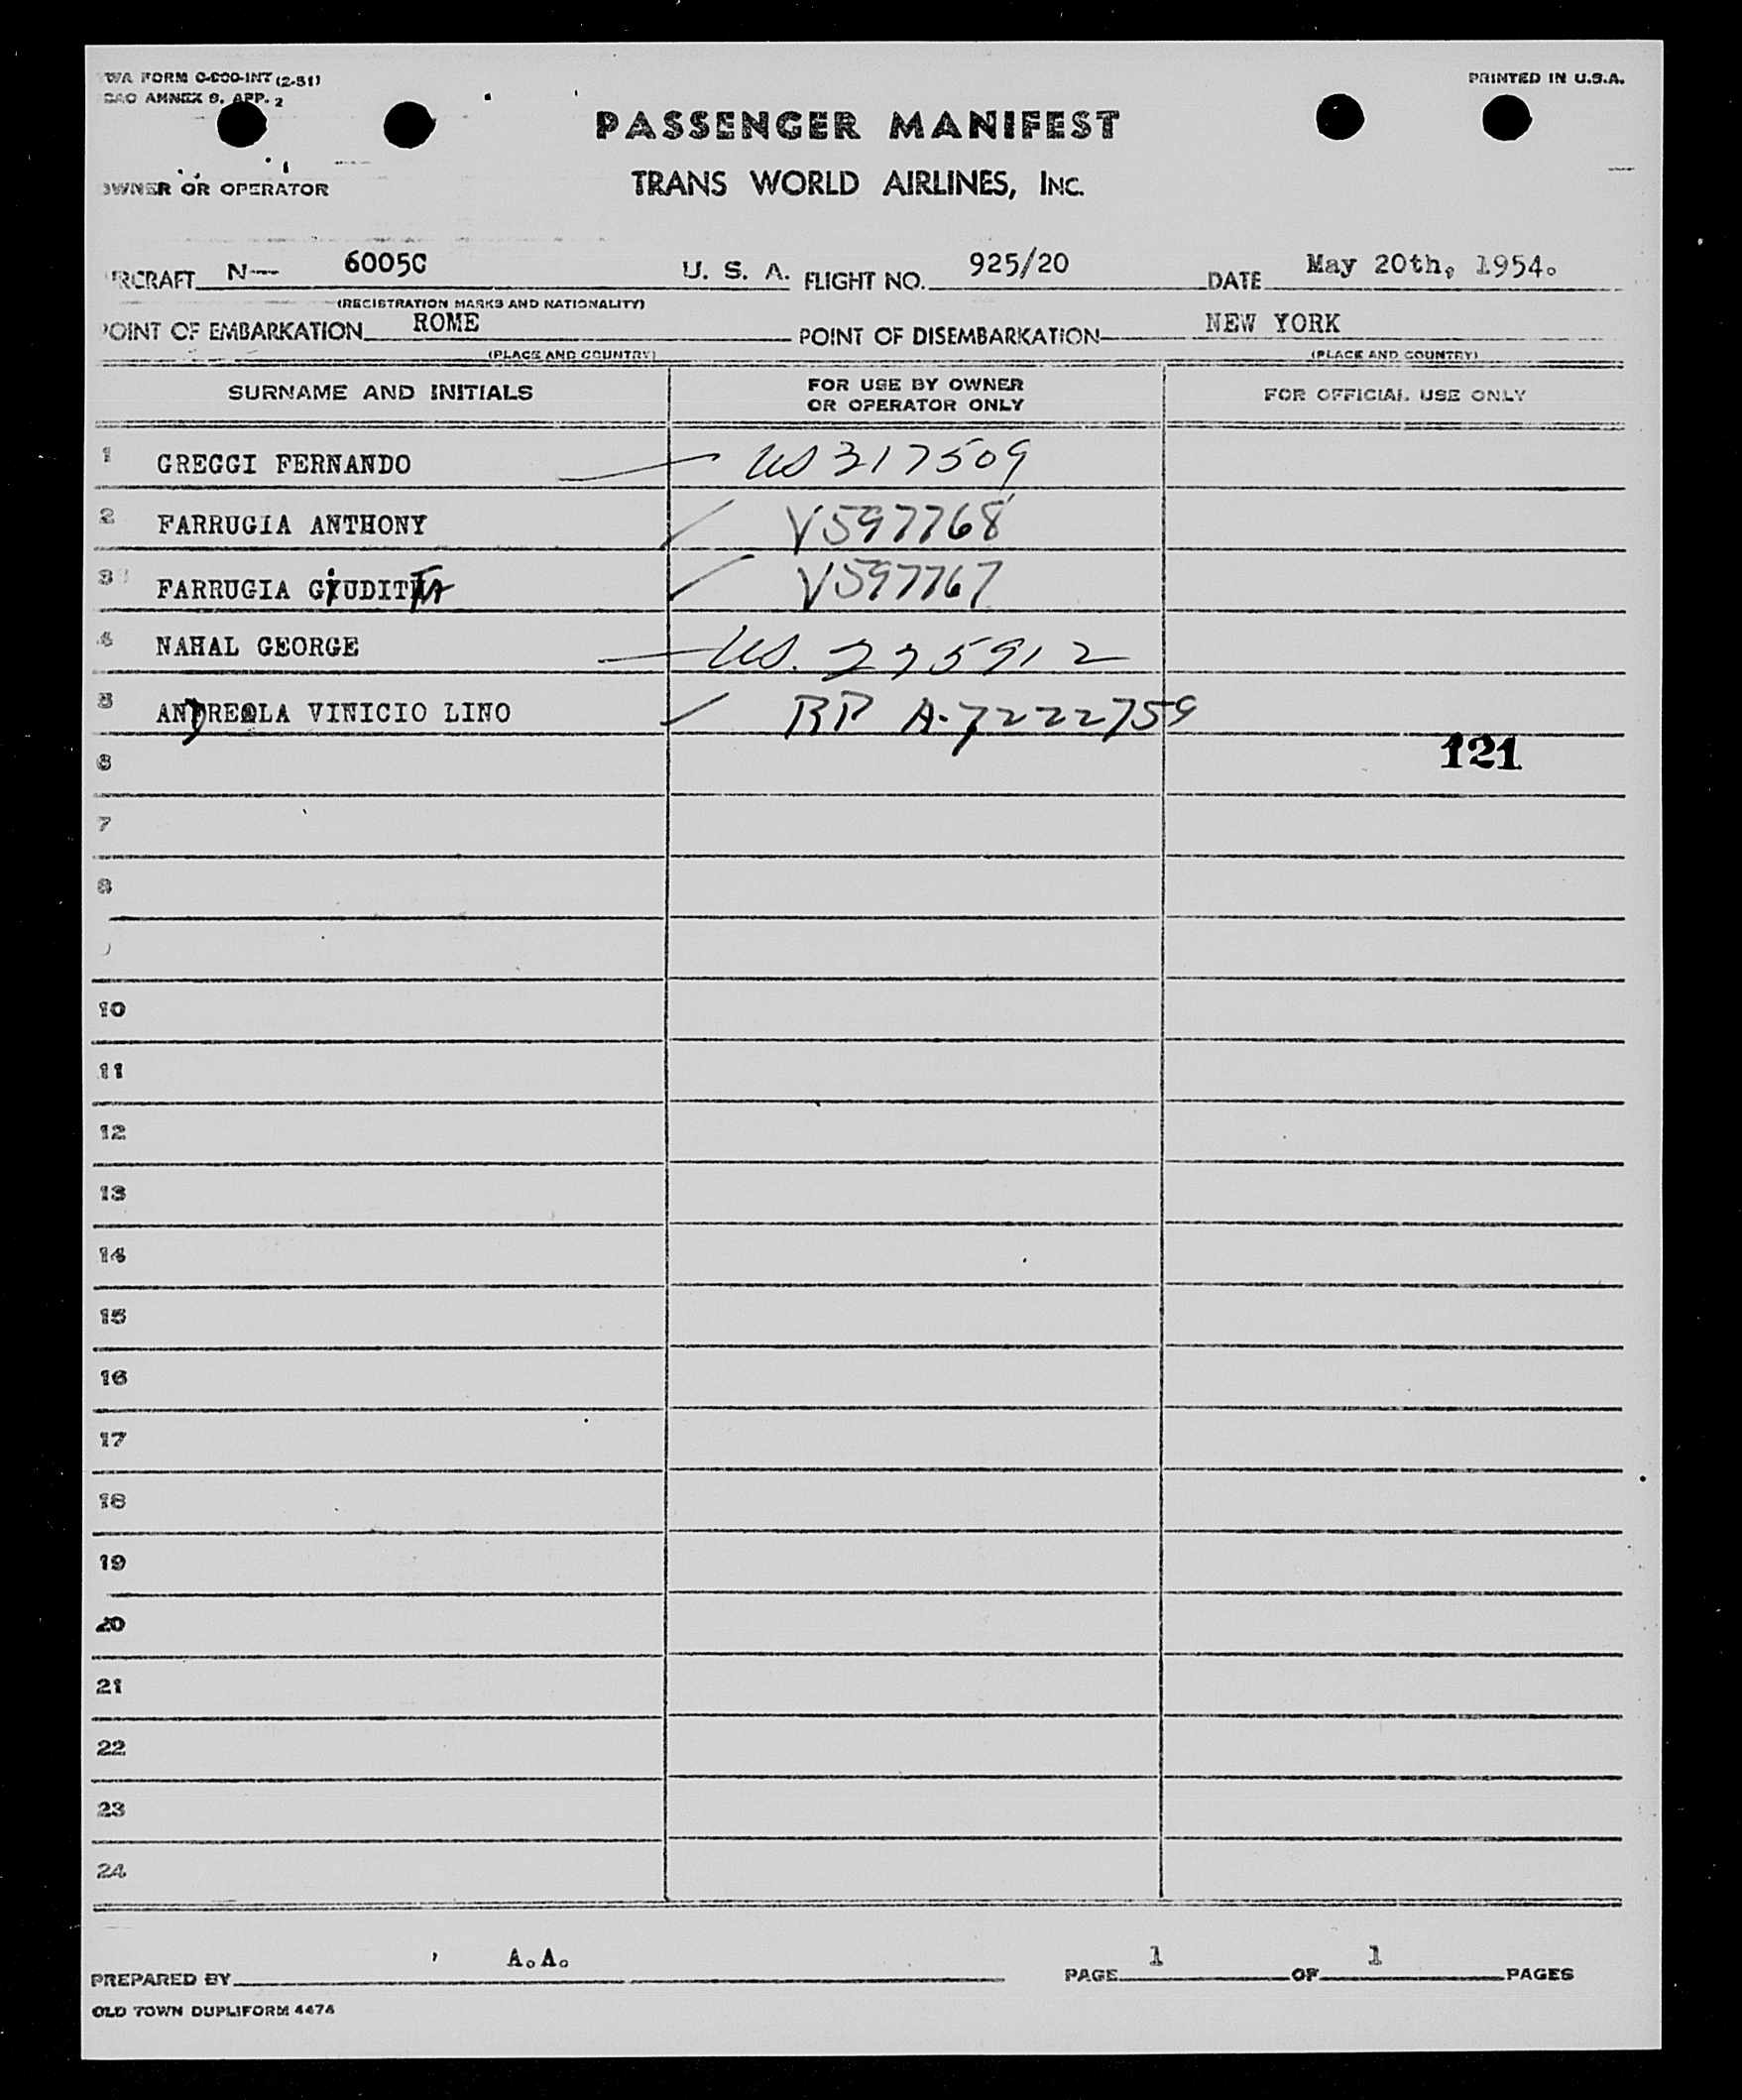 WA FORM C-COO-INT (2-51)
PRINTED IN U.S.A.
CAO ANNEX 9. APP. 2
PASSENGER MANIFEST
OWNER OR OPERATOR
TRANS WORLD AIRLINES, INC.
IRCRAFT N— 6005C U. S. A. FLIGHT NO. 925/20 DATE May 20th, 1954.
(REGISTRATION MARKS AND NATIONALITY)
POINT OF EMBARKATION ROME POINT OF DISEMBARKATION NEW YORK
(PLACE AND COUNTRY) (PLACE AND COUNTRY)
SURNAME AND INITIALS FOR USE BY OWNER OR OPERATOR ONLY FOR OFFICIAL USE ONLY
1 GREGGI FERNANDO US 317509
2 FARRUGIA ANTHONY V597768
3 FARRUGIA GIUDITTA V597767
4 NAHAL GEORGE US. 225912
5 ANDREOLA VINICIO LINO RP A-7222759
121
6
7
8
10
11
12
13
14
15
16
17
18
19
20
21
22
23
24
PREPARED BY A.A. PAGE 1 OF 1 PAGES
OLD TOWN DUPLIFORM 4474